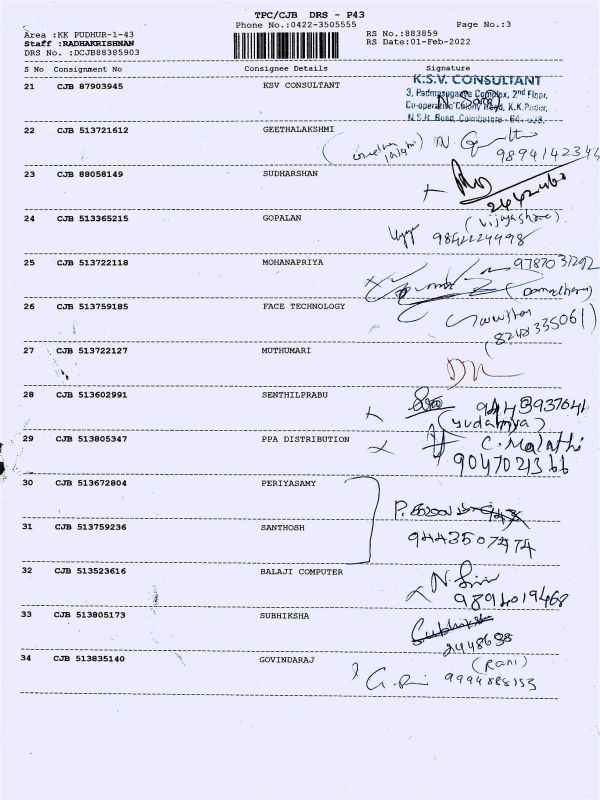 TPC/CJB DRS - P43
Phone No.:0422-3505555
Page No.:3
Area :KK PUDHUR-1-43
RS No.:883859
Staff :RADHAKRISHNAN
RS Date:01-Feb-2022
DRS No. :DCJB88385903
S No Consignment No Consignee Details Signature
21 CJB 87903945 KSV CONSULTANT
K.S.V. CONSULTANT
3, Padmasugandha Complex, 2nd Floor,
Co-operative Colony Road, K.K.Pudur,
N.S.R. Road, Coimbatore
22 CJB 513721612 GEETHALAKSHMI
23 CJB 88058149 SUDHARSHAN
2442460
24 CJB 513365215 GOPALAN
(Vijayashree)
9842224998
25 CJB 513722118 MOHANAPRIYA
9787031292
26 CJB 513759185 FACE TECHNOLOGY
27 CJB 513722127 MUTHUMARI
28 CJB 513602991 SENTHILPRABU
9443937041
29 CJB 513805347 PPA DISTRIBUTION
C. Malathi
9047021366
30 CJB 513672804 PERIYASAMY
31 CJB 513759236 SANTHOSH
9443507474
32 CJB 513523616 BALAJI COMPUTER
9894019468
33 CJB 513805173 SUBHIKSHA
2448698
34 CJB 513835140 GOVINDARAJ
(Rani)